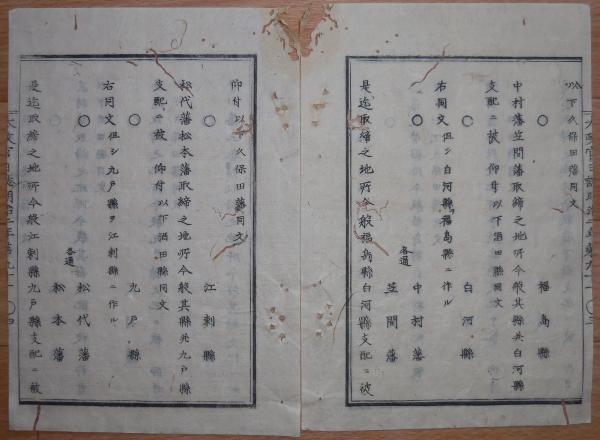 以下久保田藩同文
○
福島縣
中村藩笠間藩取締之地所今般其縣共白河縣
支配ニ被 仰付以下酒田縣同文
○
白河縣
右同文但シ白河縣ヲ福島縣ニ作ル
○
各通
中村藩
笠間藩
是迄取締之地所今般福島縣白河縣支配ニ被
仰付以下久保田藩同文
○
江刺縣
松代藩松本藩取締之地所今般其縣共九戸縣
支配ニ被 仰付以下酒田縣同文
○
九戸縣
右同文但シ九戸縣ヲ江刺縣ニ作ル
○
各通
松代藩
松本藩
是迄取締之地所今般江刺縣九戸縣支配ニ被